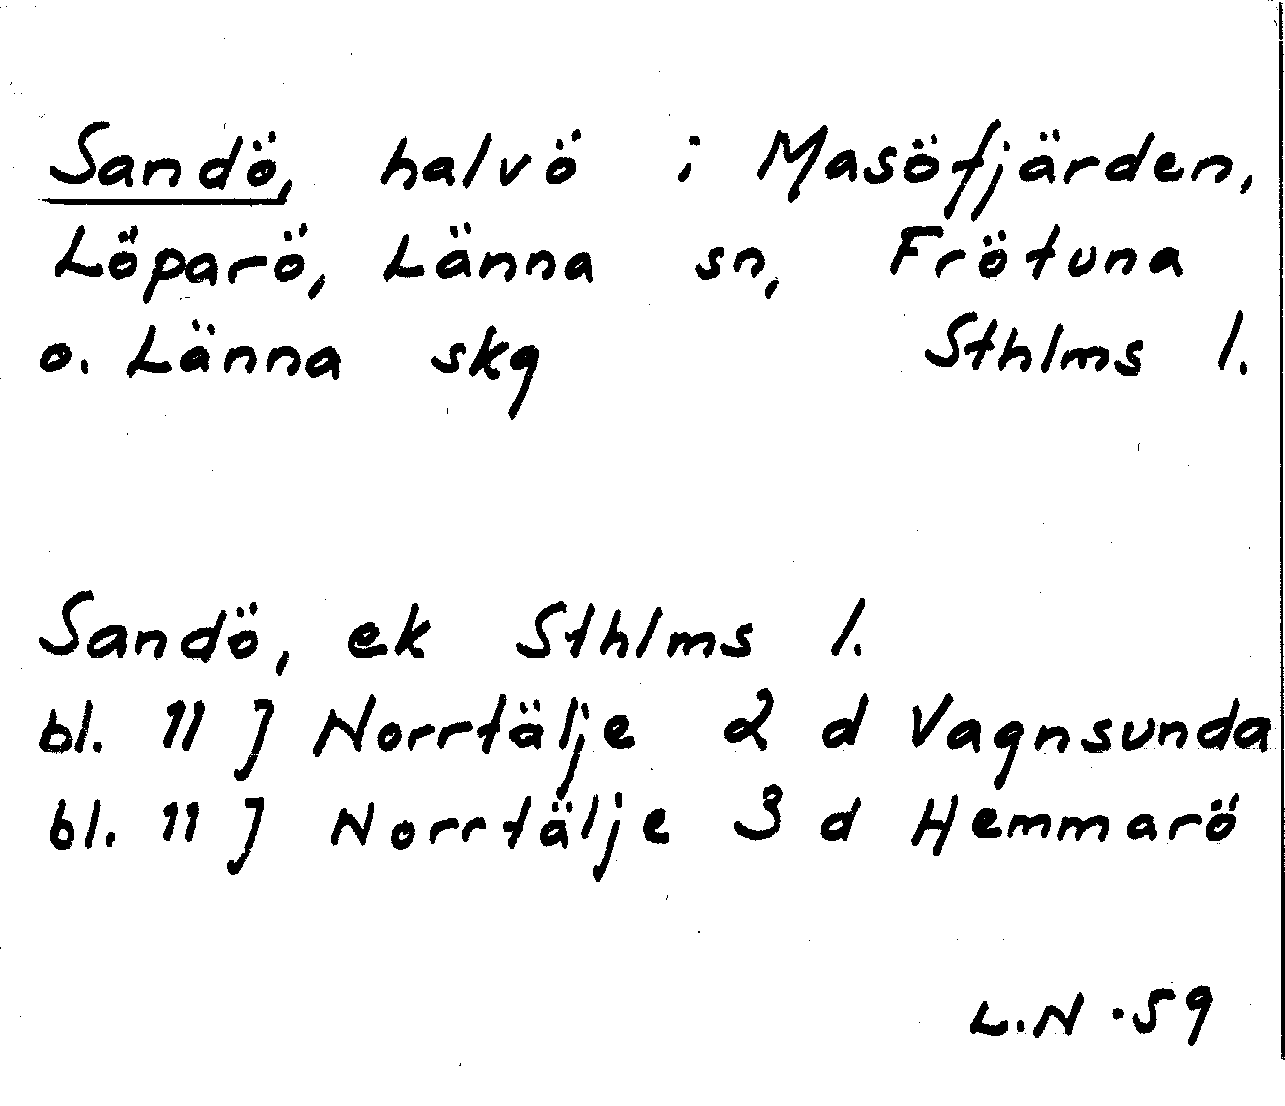 Sandö, halvö i Masöfjärden,
Löparö, Länna sn, Frötuna
o. Länna skg Sthlms l.
Sandö, ek Sthlms l.
bl. 11 J Norrtälje 2 d Vagnsunda
bl. 11 J Norrtälje 3 d Hemmarö
L.N. 59